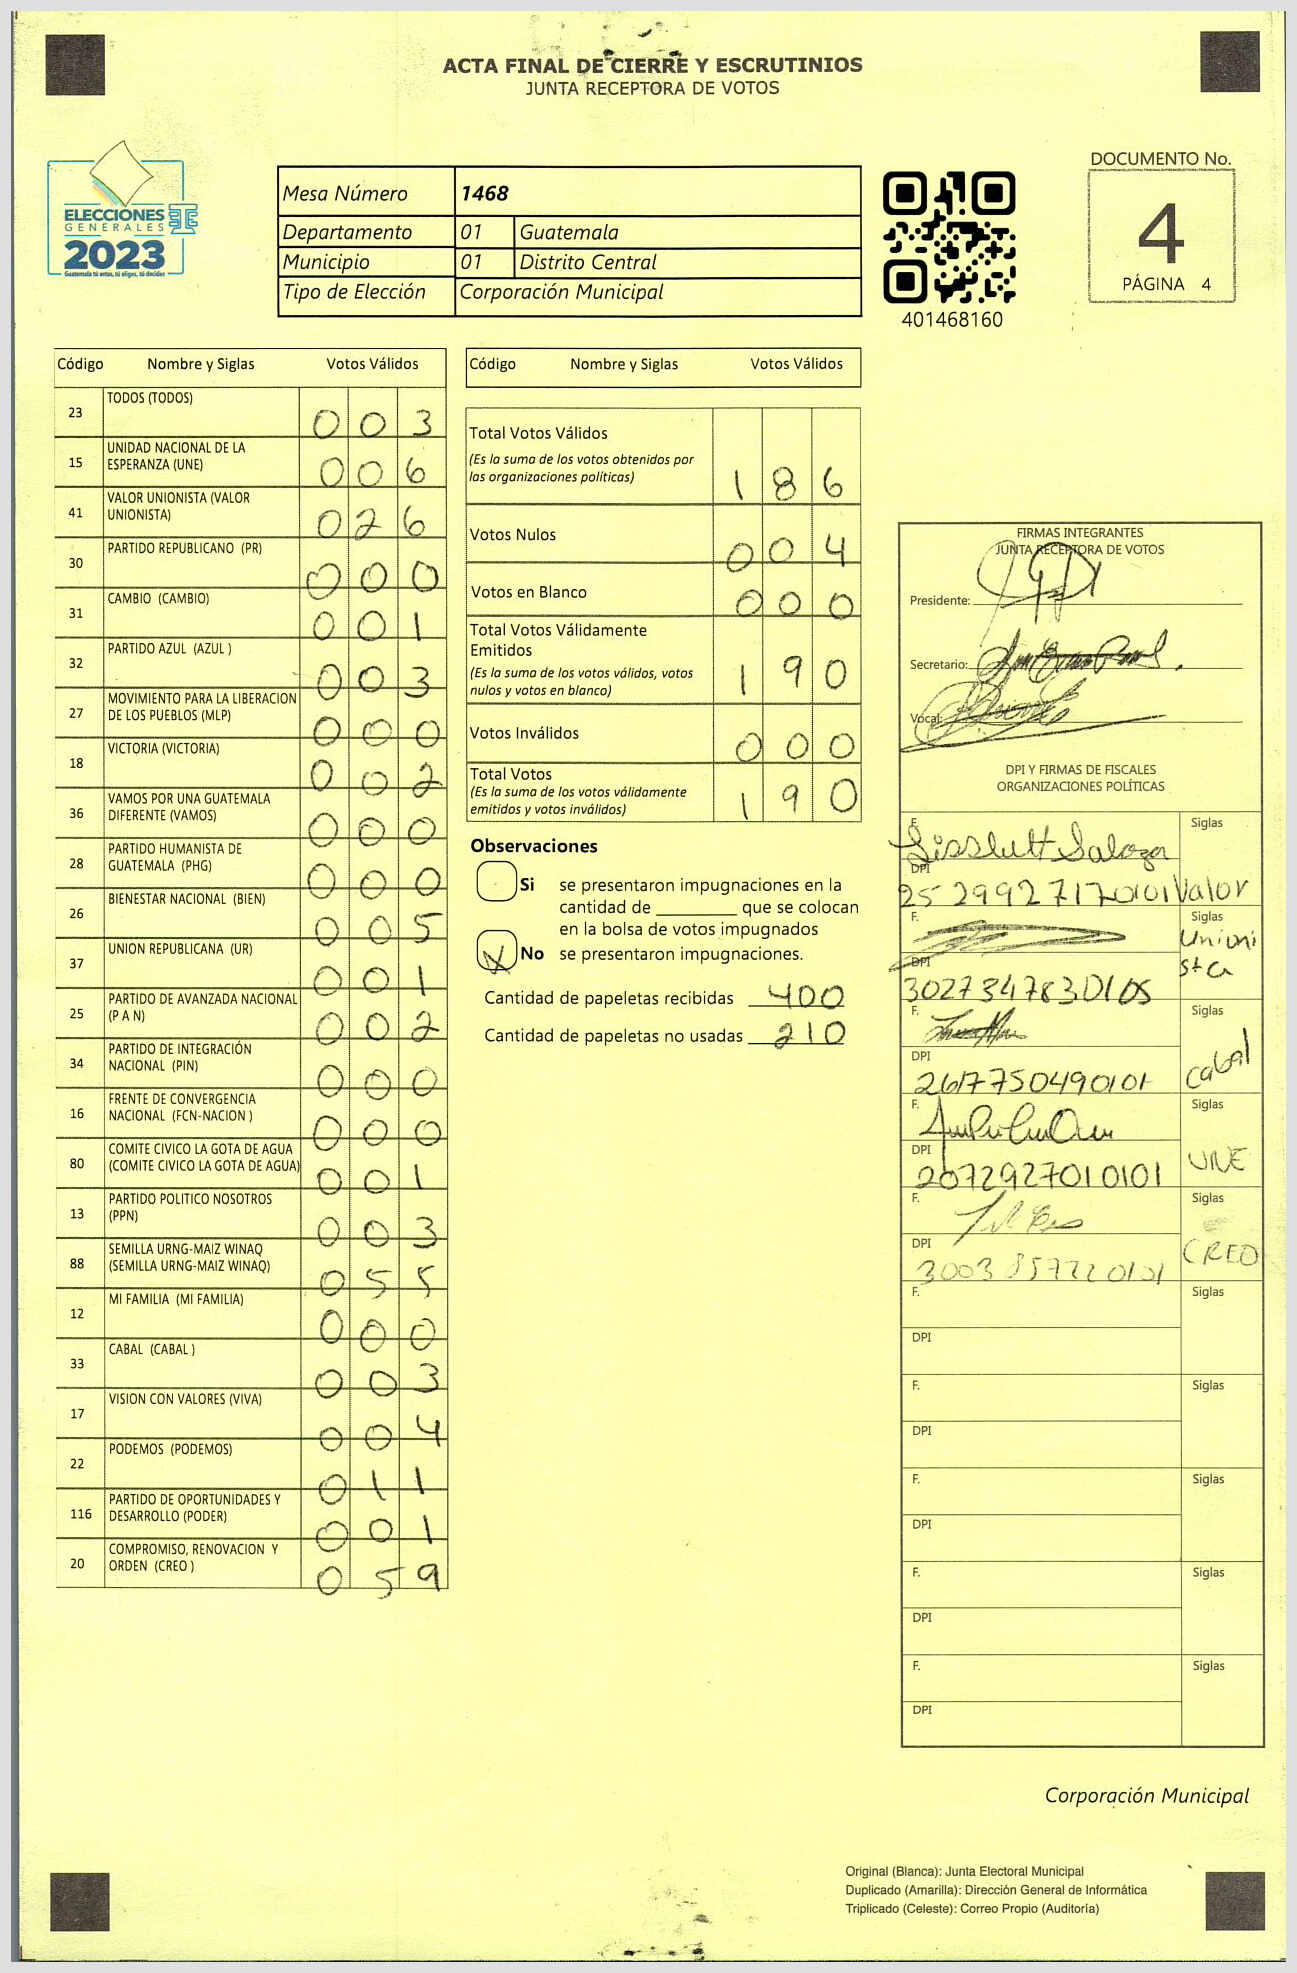 ACTA FINAL DE CIERRE Y ESCRUTINIOS
JUNTA RECEPTORA DE VOTOS
ELECCIONES
GENERALES
2023
Guatemala tú eres, tú eliges, tú decides
Mesa Número 1468
Departamento 01 Guatemala
Municipio 01 Distrito Central
Tipo de Elección Corporación Municipal
401468160
DOCUMENTO No.
4
PÁGINA 4
Código Nombre y Siglas Votos Válidos
23 TODOS (TODOS) 0 0 3
15 UNIDAD NACIONAL DE LA
ESPERANZA (UNE) 0 0 6
41 VALOR UNIONISTA (VALOR
UNIONISTA) 0 2 6
30 PARTIDO REPUBLICANO (PR) 0 0 0
31 CAMBIO (CAMBIO) 0 0 1
32 PARTIDO AZUL (AZUL ) 0 0 3
27 MOVIMIENTO PARA LA LIBERACION
DE LOS PUEBLOS (MLP) 0 0 0
18 VICTORIA (VICTORIA) 0 0 2
36 VAMOS POR UNA GUATEMALA
DIFERENTE (VAMOS) 0 0 0
28 PARTIDO HUMANISTA DE
GUATEMALA (PHG) 0 0 0
26 BIENESTAR NACIONAL (BIEN) 0 0 5
37 UNION REPUBLICANA (UR) 0 0 1
25 PARTIDO DE AVANZADA NACIONAL
(P A N) 0 0 2
34 PARTIDO DE INTEGRACIÓN
NACIONAL (PIN) 0 0 0
16 FRENTE DE CONVERGENCIA
NACIONAL (FCN-NACION ) 0 0 0
80 COMITE CIVICO LA GOTA DE AGUA
(COMITE CIVICO LA GOTA DE AGUA) 0 0 1
13 PARTIDO POLITICO NOSOTROS
(PPN) 0 0 3
88 SEMILLA URNG-MAIZ WINAQ
(SEMILLA URNG-MAIZ WINAQ) 0 5 5
12 MI FAMILIA (MI FAMILIA) 0 0 0
33 CABAL (CABAL ) 0 0 3
17 VISION CON VALORES (VIVA) 0 0 4
22 PODEMOS (PODEMOS) 0 1 1
116 PARTIDO DE OPORTUNIDADES Y
DESARROLLO (PODER) 0 0 1
20 COMPROMISO, RENOVACION Y
ORDEN (CREO ) 0 5 9
Código Nombre y Siglas Votos Válidos
Total Votos Válidos
(Es la suma de los votos obtenidos por
las organizaciones políticas) 1 8 6
Votos Nulos 0 0 4
Votos en Blanco 0 0 0
Total Votos Válidamente
Emitidos
(Es la suma de los votos válidos, votos
nulos y votos en blanco) 1 9 0
Votos Inválidos 0 0 0
Total Votos
(Es la suma de los votos válidamente
emitidos y votos inválidos) 1 9 0
Observaciones
Si se presentaron impugnaciones en la
cantidad de ________ que se colocan
en la bolsa de votos impugnados
No se presentaron impugnaciones.
Cantidad de papeletas recibidas 400
Cantidad de papeletas no usadas 210
FIRMAS INTEGRANTES
JUNTA RECEPTORA DE VOTOS
Presidente:
Secretario:
Vocal:
DPI Y FIRMAS DE FISCALES
ORGANIZACIONES POLÍTICAS
F. Siglas
DPI
Valor
F. Siglas
Unioni
sta
DPI
F. Siglas
DPI
2617750490101 Cabal
F. Siglas
DPI
2072927010101 UNE
F. Siglas
DPI
CREO
F. Siglas
DPI
F. Siglas
DPI
F. Siglas
DPI
F. Siglas
DPI
F. Siglas
DPI
Corporación Municipal
Original (Blanca): Junta Electoral Municipal
Duplicado (Amarilla): Dirección General de Informática
Triplicado (Celeste): Correo Propio (Auditoría)